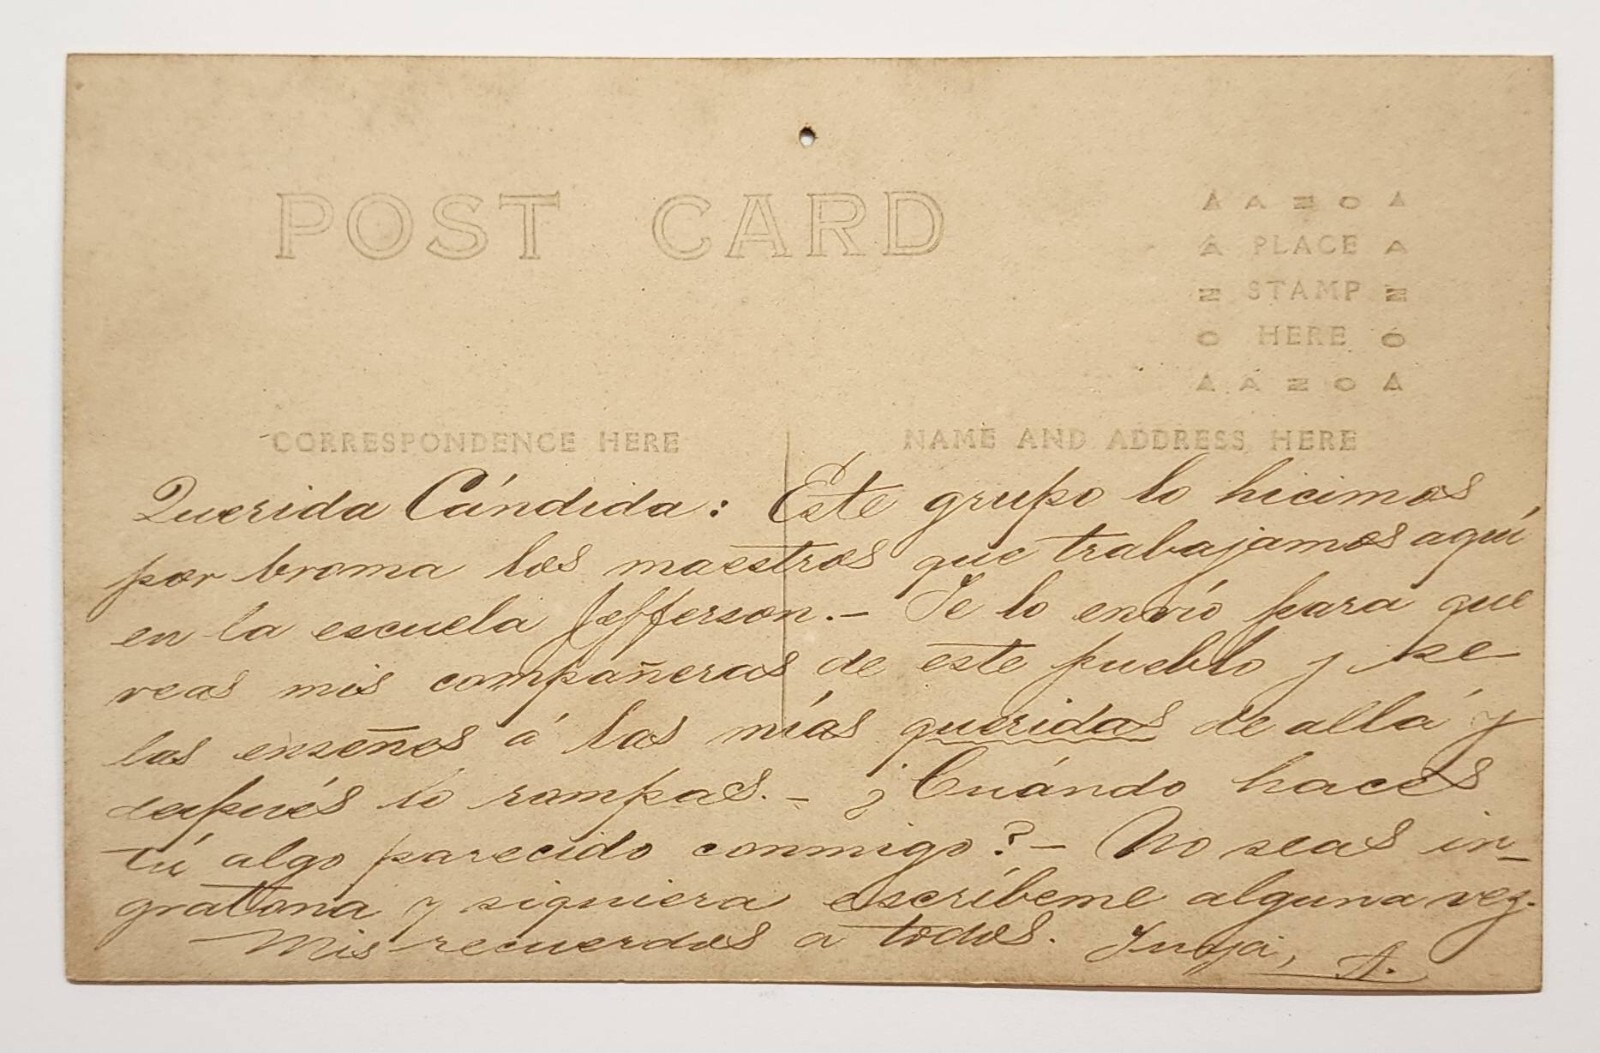 POST CARD
AZO
PLACE
STAMP
HERE
AZO
CORRESPONDENCE HERE
NAME AND ADDRESS HERE
Querida Cándida: Este grupo lo hicimos
por broma los maestros que trabajamos aquí
en la escuela Jefferson.- Te lo envío para que
veas mis compañeras de este pueblo y se
las enseñes á las mías queridas de allá y
después lo rompas.- ¿Cuándo haces
tú algo parecido conmigo?- No seas in-
gratona y siquiera escríbeme alguna vez.
Mis recuerdos a todos. Tuya, A.